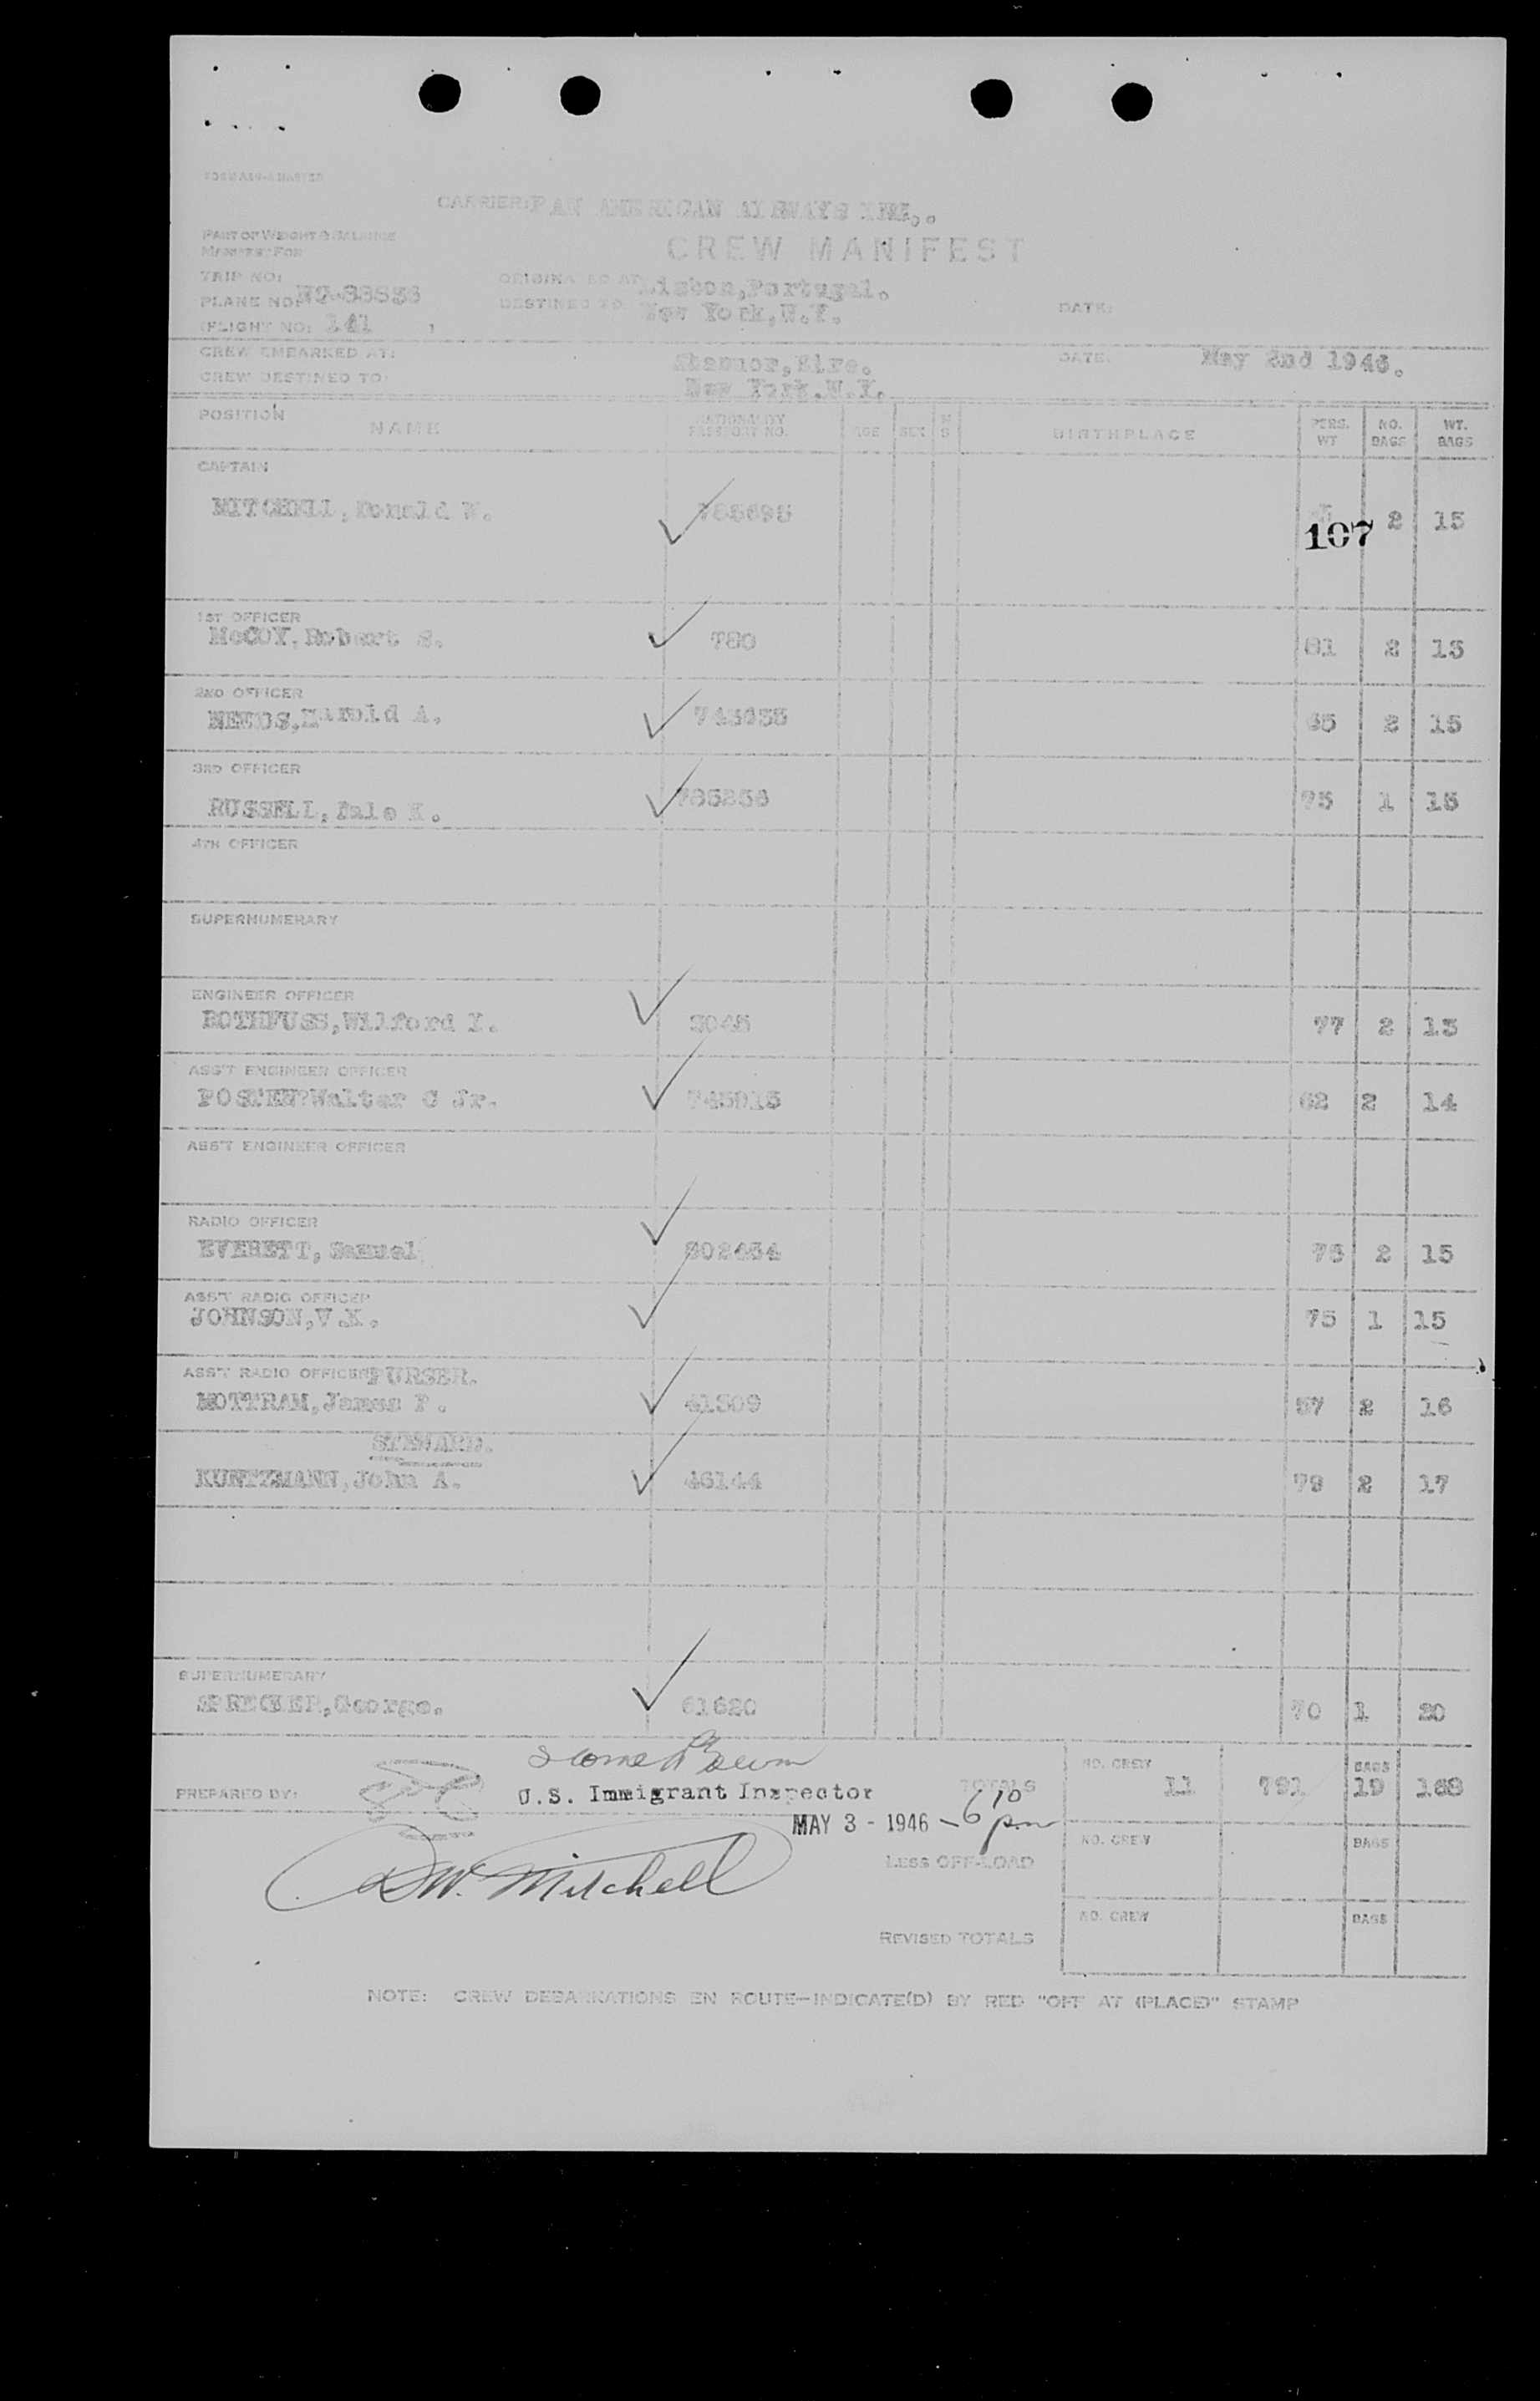 CARRIER: PAN AMERICAN AIRWAYS INC.
PART OF WEIGHT & BALANCE
MANIFEST FOR
CREW MANIFEST
TRIP NO:
ORIGINATED AT Lisbon, Portugal.
PLANE NO:
DESTINED TO New York, N.Y.
DATE:
(FLIGHT NO: 141 )
CREW EMBARKED AT: Shannon, Eire. DATE: May 2nd 1946.
CREW DESTINED TO: New York, N.Y.
POSITION NAME NATIONALITY PASSPORT NO. AGE SEX M S BIRTHPLACE PERS. WT NO. BAGS WT. BAGS
CAPTAIN
MITCHELL, Donald W. 107 2 15
1ST OFFICER
McCOY, Robert S. 780 81 2 15
2ND OFFICER
Harold A. 2 15
3RD OFFICER
RUSSELL, Dale K. 75 1 15
4TH OFFICER
SUPERNUMERARY
ENGINEER OFFICER
ROTHFUSS, Wilford Y. 77 2 15
ASS'T ENGINEER OFFICER
POSTEN?Walter C Jr. 62 2 14
ASS'T ENGINEER OFFICER
RADIO OFFICER
EVERETT, Samuel 2 15
ASS'T RADIO OFFICER
JOHNSON, V.K. 75 1 15
ASS'T RADIO OFFICER PURSER.
MOTTRAM, James F. 41509 57 2 16
STEWARD.
KUNTZMANN, John A. 46144 79 2 17
SUPERNUMERARY
SPRECHER, George. 61620 70 1 20
U.S. Immigrant Inspector
PREPARED BY: TOTALS NO. CREW 11 791 BAGS 19
MAY 3 - 1946 - 6 10 pm
D.W. Mitchell
LESS OFF-LOAD NO. CREW BAGS
REVISED TOTALS NO. CREW BAGS
NOTE: CREW DEBARKATIONS EN ROUTE—INDICATE(D) BY RED "OFF AT (PLACE)" STAMP